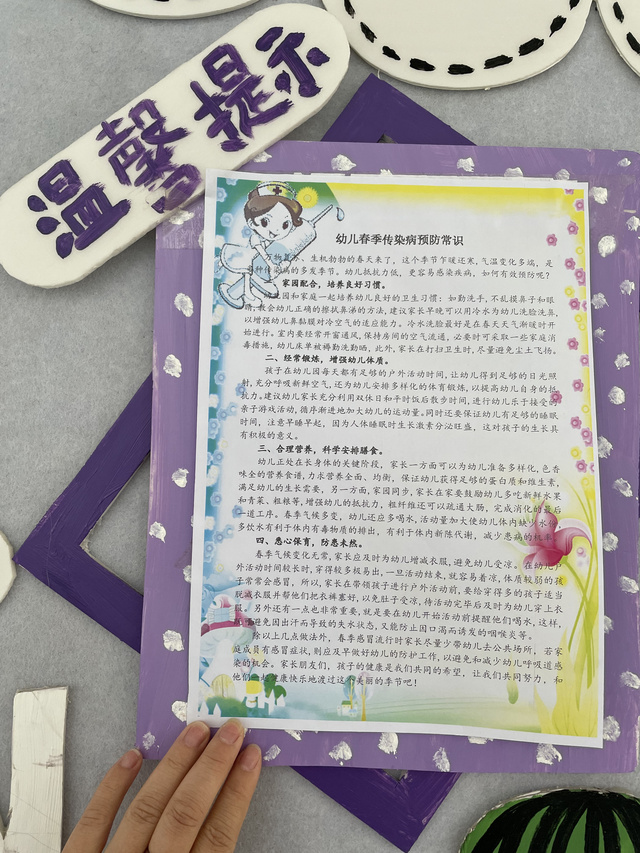 温馨提示
幼儿春季传染病预防常识
万物复苏、生机勃勃的春天来了，这个季节乍暖还寒，气温变化多端，是
种传染病的多发季节。幼儿抵抗力低，更容易感染疾病，如何有效预防呢？
家园配合，培养良好习惯。
园和家庭一起培养幼儿良好的卫生习惯：如勤洗手，不乱摸鼻子和眼
睛，教会幼儿正确的擦拭鼻涕的方法，建议家长早晚可以用冷水为幼儿洗脸洗鼻，
以增强幼儿鼻黏膜对冷空气的适应能力。冷水洗脸最好是在春天天气渐暖时开
始进行。室内要经常开窗通风，保持房间的空气流通，必要时可采取一些家庭消
毒措施，幼儿床单被褥勤洗勤晒，此外，家长在打扫卫生时，尽量避免尘土飞扬。
二、经常锻炼，增强幼儿体质。
孩子在幼儿园每天都有足够的户外活动时间，让幼儿得到足够的日光照
射，充分呼吸新鲜空气，还为幼儿安排多样化的体育锻炼，以提高幼儿自身的抵
抗力。建议幼儿家长充分利用双休日和平时饭后散步时间，进行幼儿乐于接受的
亲子游戏活动，循序渐进地加大幼儿的运动量。同时还要保证幼儿有足够的睡眠
时间，注意早睡早起，因为人体睡眠时生长激素分泌旺盛，这对孩子的生长具
有积极的意义。
三、合理营养，科学安排膳食。
幼儿正处在长身体的关键阶段，家长一方面可以为幼儿准备多样化，色香
味全的营养食谱，力求营养全面、均衡，保证幼儿获得足够的蛋白质和维生素，
满足幼儿的生长需要，另一方面，家园同步，家长在家要鼓励幼儿多吃新鲜水果
和青菜、粗粮等，增强幼儿的抵抗力，粗纤维还可以疏通大肠，完成消化的最后
一道工序。春季气候多变，幼儿还应多喝水，活动量加大使幼儿体内缺少水份，
多饮水有利于体内有毒物质的排出，有利于体内新陈代谢，减少患病的机率。
四、悉心保育，防患未然。
春季气候变化无常，家长应及时为幼儿增减衣服，避免幼儿受凉。在幼儿户
外活动时间较长时，穿得较多极易出，一旦活动结束，就容易着凉，体质较弱的孩
子常常会感冒，所以，家长在带领孩子进行户外活动前，要给穿得多的孩子适当
脱减衣服并帮他们把衣裤塞好，以免肚子受凉，待活动完毕后及时为幼儿穿上衣
服。另外还有一点也非常重要，就是要在幼儿开始活动前提醒他们喝水，这样，
避免因出汗而导致的失水状态，又能防止因口渴而诱发的咽喉炎等。
除以上几点做法外，春季感冒流行时家长尽量少带幼儿去公共场所，若家
庭成员有感冒症状，则应及早做好幼儿的防护工作，以避免和减少幼儿呼吸道感
染的机会。家长朋友们，孩子的健康是我们共同的希望，让我们共同努力，和
他们一起健康快乐地渡过这个美丽的季节吧！